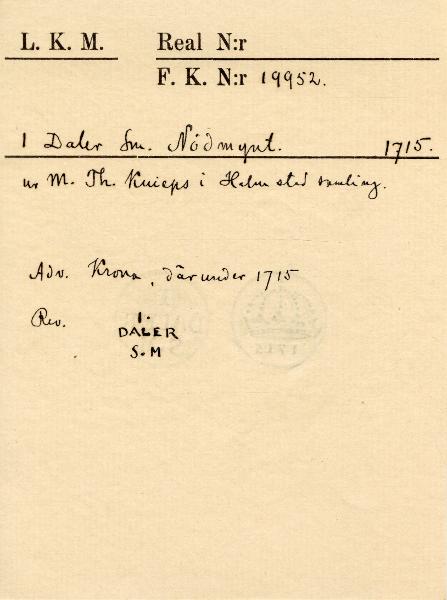 L. K. M. Real N:r
F. K. N:r 19952.
1 Daler Sm. Nödmynt. 1715.
ur M. Th. Knieps i Halmstad samling.
Adv. Krona, därunder 1715
Rev. 1.
DALER
S.M